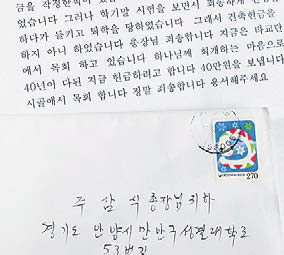 금을 작정한적이
있었습니다 그러나 학기말 시험을 보면서 죄송하게
하다가 들키고 퇴학을 당하였습니다 그래서 건축헌금을
하지 아니 하였습니다 총장님 죄송합니다 지금은 타교단
에서 목회 하고 있습니다 하나님께 회개하는 마음으로
40년이 다된 지금 헌금하려고 합니다 40만원을 보냅니다
시골에서 목회 합니다 정말 죄송합니다 용서해주세요
270
주 삼 식 총장님귀하
경기도 안양시 만안구 성결대학로
53번길